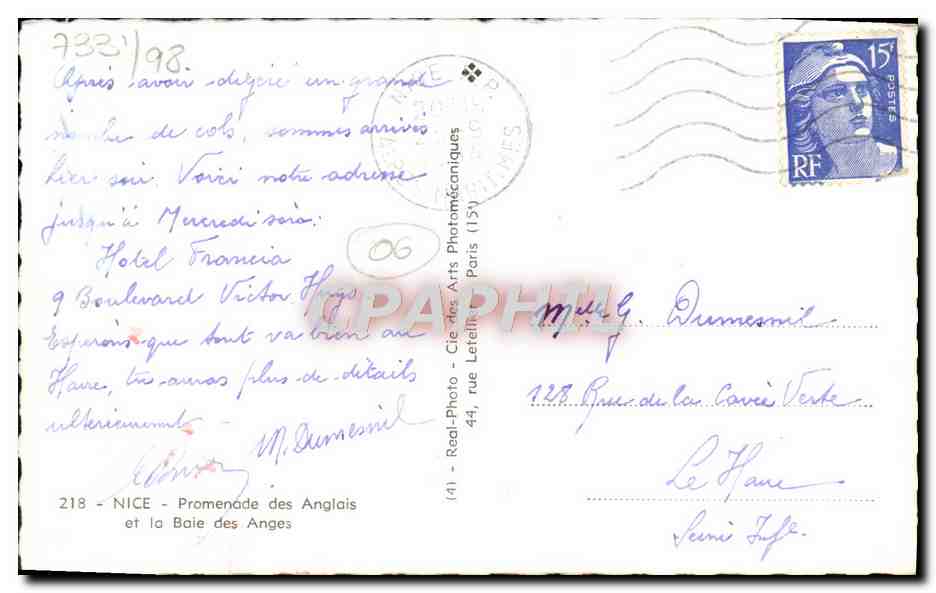 7331/98
Après avoir digéré un grand
nombre de cols, sommes arrivés
hier soir. Voici notre adresse
jusqu'à Mercredi soir:
Hotel Francia
9 Boulevard Victor Hugo
Espérons que tout va bien au
Havre, tu auras plus de détails
ultérieurement
M. Dumesnil
218 - NICE - Promenade des Anglais
et la Baie des Anges
06
(4) - Real-Photo - Cie des Arts Photomécaniques
44, rue Letellier - Paris (15e)
NICE R.P.
MARITIMES
15F
POSTES
RF
CPAPHIL
Melle G. Dumesnil
128 Rue de la Cavée Verte
Le Havre
Seine Infre